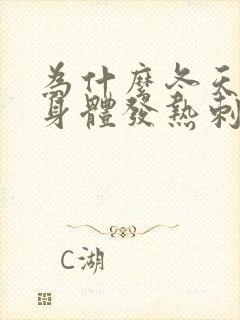 為什麼冬天
身體發熱刺
C湖